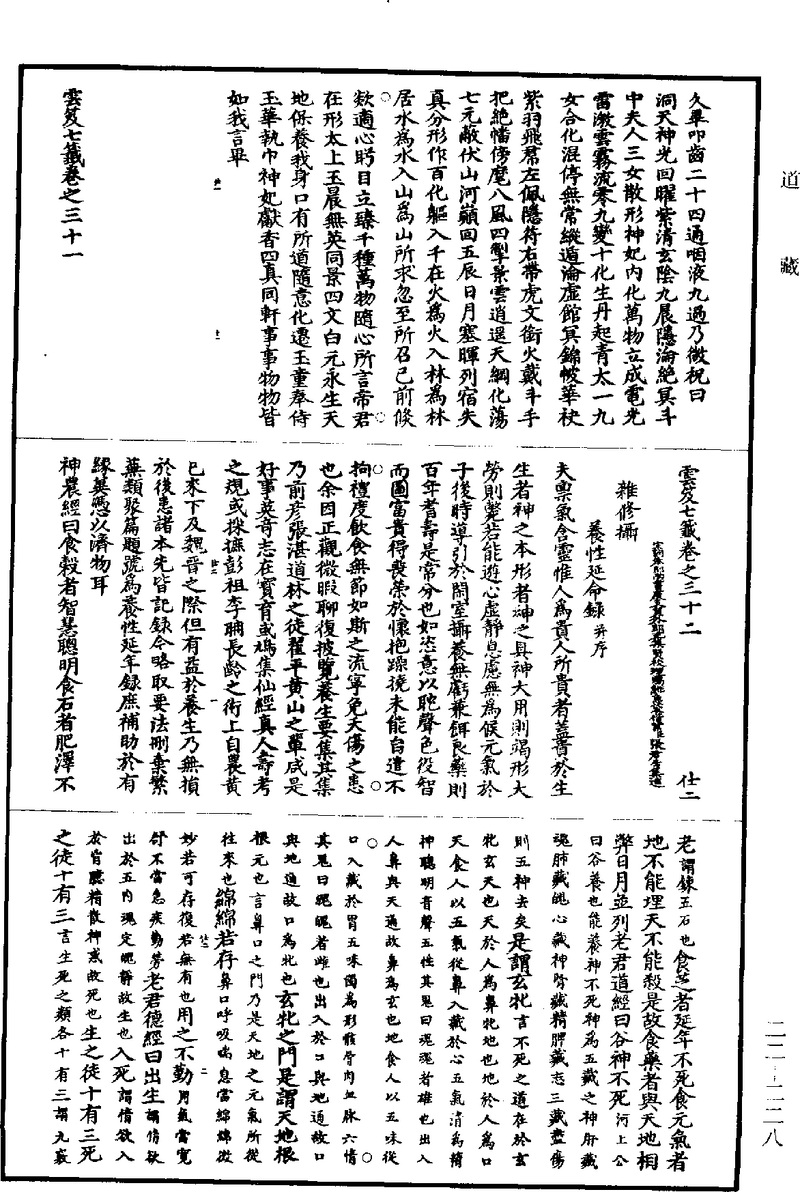 道藏
久畢叩齒二十四通咽液九過乃微祝曰
洞天神光回曜紫清玄陰九晨隱淪絕冥斗
中夫人三女散形神妃內化萬物立成電光
雷激雲霧流零九變十化生丹起青太一九
女合化混停無常縱遁淪虛館冥錦帔華袂
紫羽飛席左佩隱符右帶虎文銜火戴斗手
把絕幡傍麾八風四掣景雲逍遥天綱化蕩
七元蔽伏山河巔回五辰日月塞暉列宿失
真分形作百化軀入千在火為火入林為林
居水為水入山為山所求忽至所召已前倏
欻適心眄目立臻千種萬物隨心所言帝君
在形太上玉晨無英同景四文白元永生天
地保養我身口有所道隨意化遷玉童奉侍
玉華執巾神妃獻香四真同軒事事物物皆
如我言畢
雲笈七籤卷之三十一
雲笈七籤卷之三十二 仕二
雜修攝
養性延命錄并序
夫稟氣含靈惟人為貴人所貴者蓋貴於生
生者神之本形者神之具神大用則竭形大
勞則斃若能遊心虛靜息慮無為候元氣於
子後時導引於閑室攝養無虧兼餌良藥則
百年耆壽是常分也如恣意以耽聲色役智
而圖富貴得喪榮於懷抱躁撓未能自遣不
拘禮度飲食無節如斯之流寧免夭傷之患
也余因正觀微暇聊復披覽養生要集其集
乃前彥張湛道林之徒翟平黄山之輩咸是
好事英奇志在寶育或鳩集仙經真人壽考
之規或採摭彭祖李聃長齡之術上自農黄
已來下及魏晉之際但有益於養生乃無損
於後患諸本先皆記録今略取要法刪棄繁
蕪類聚篇題號為養性延年録庶補助於有
緣冀憑以濟物耳
神農經曰食穀者智慧聰明食石者肥澤不
老謂鍊五石也食芝者延年不死食元氣者
地不能埋天不能殺是故食藥者與天地相
弊日月並列老君道經曰谷神不死河上公
曰谷養也能養神不死神為五藏之神肝藏
魂肺藏魄心藏神腎藏精脾藏志五藏盡傷
則五神去矣是謂玄牝言不死之道在於玄
牝玄天也天於人為鼻牝地也地於人為口
天食人以五氣從鼻入藏於心五氣清為精
神聰明音聲五性其鬼曰魂魂者雄也出入
人鼻與天通故鼻為玄也地食人以五味從
口入藏於胃五味濁為形骸骨肉血脉六情
其鬼曰魄魄者雌也出入於口與地通故口
與地通故口為牝也玄牝之門是謂天地根
根元也言鼻口之門乃是天地之元氣所從
往來也綿綿若存鼻口呼吸喘息當綿綿微
妙若可存復若無有也用之不勤用氣當寬
舒不當急疾勤勞老君德經曰出生謂情欲
出於五內魂定魄靜故生也入死謂情欲入
於胷臆精散神惑故死也生之徒十有三死
之徒十有三言生死之類各十有三謂九竅
二二—二二八